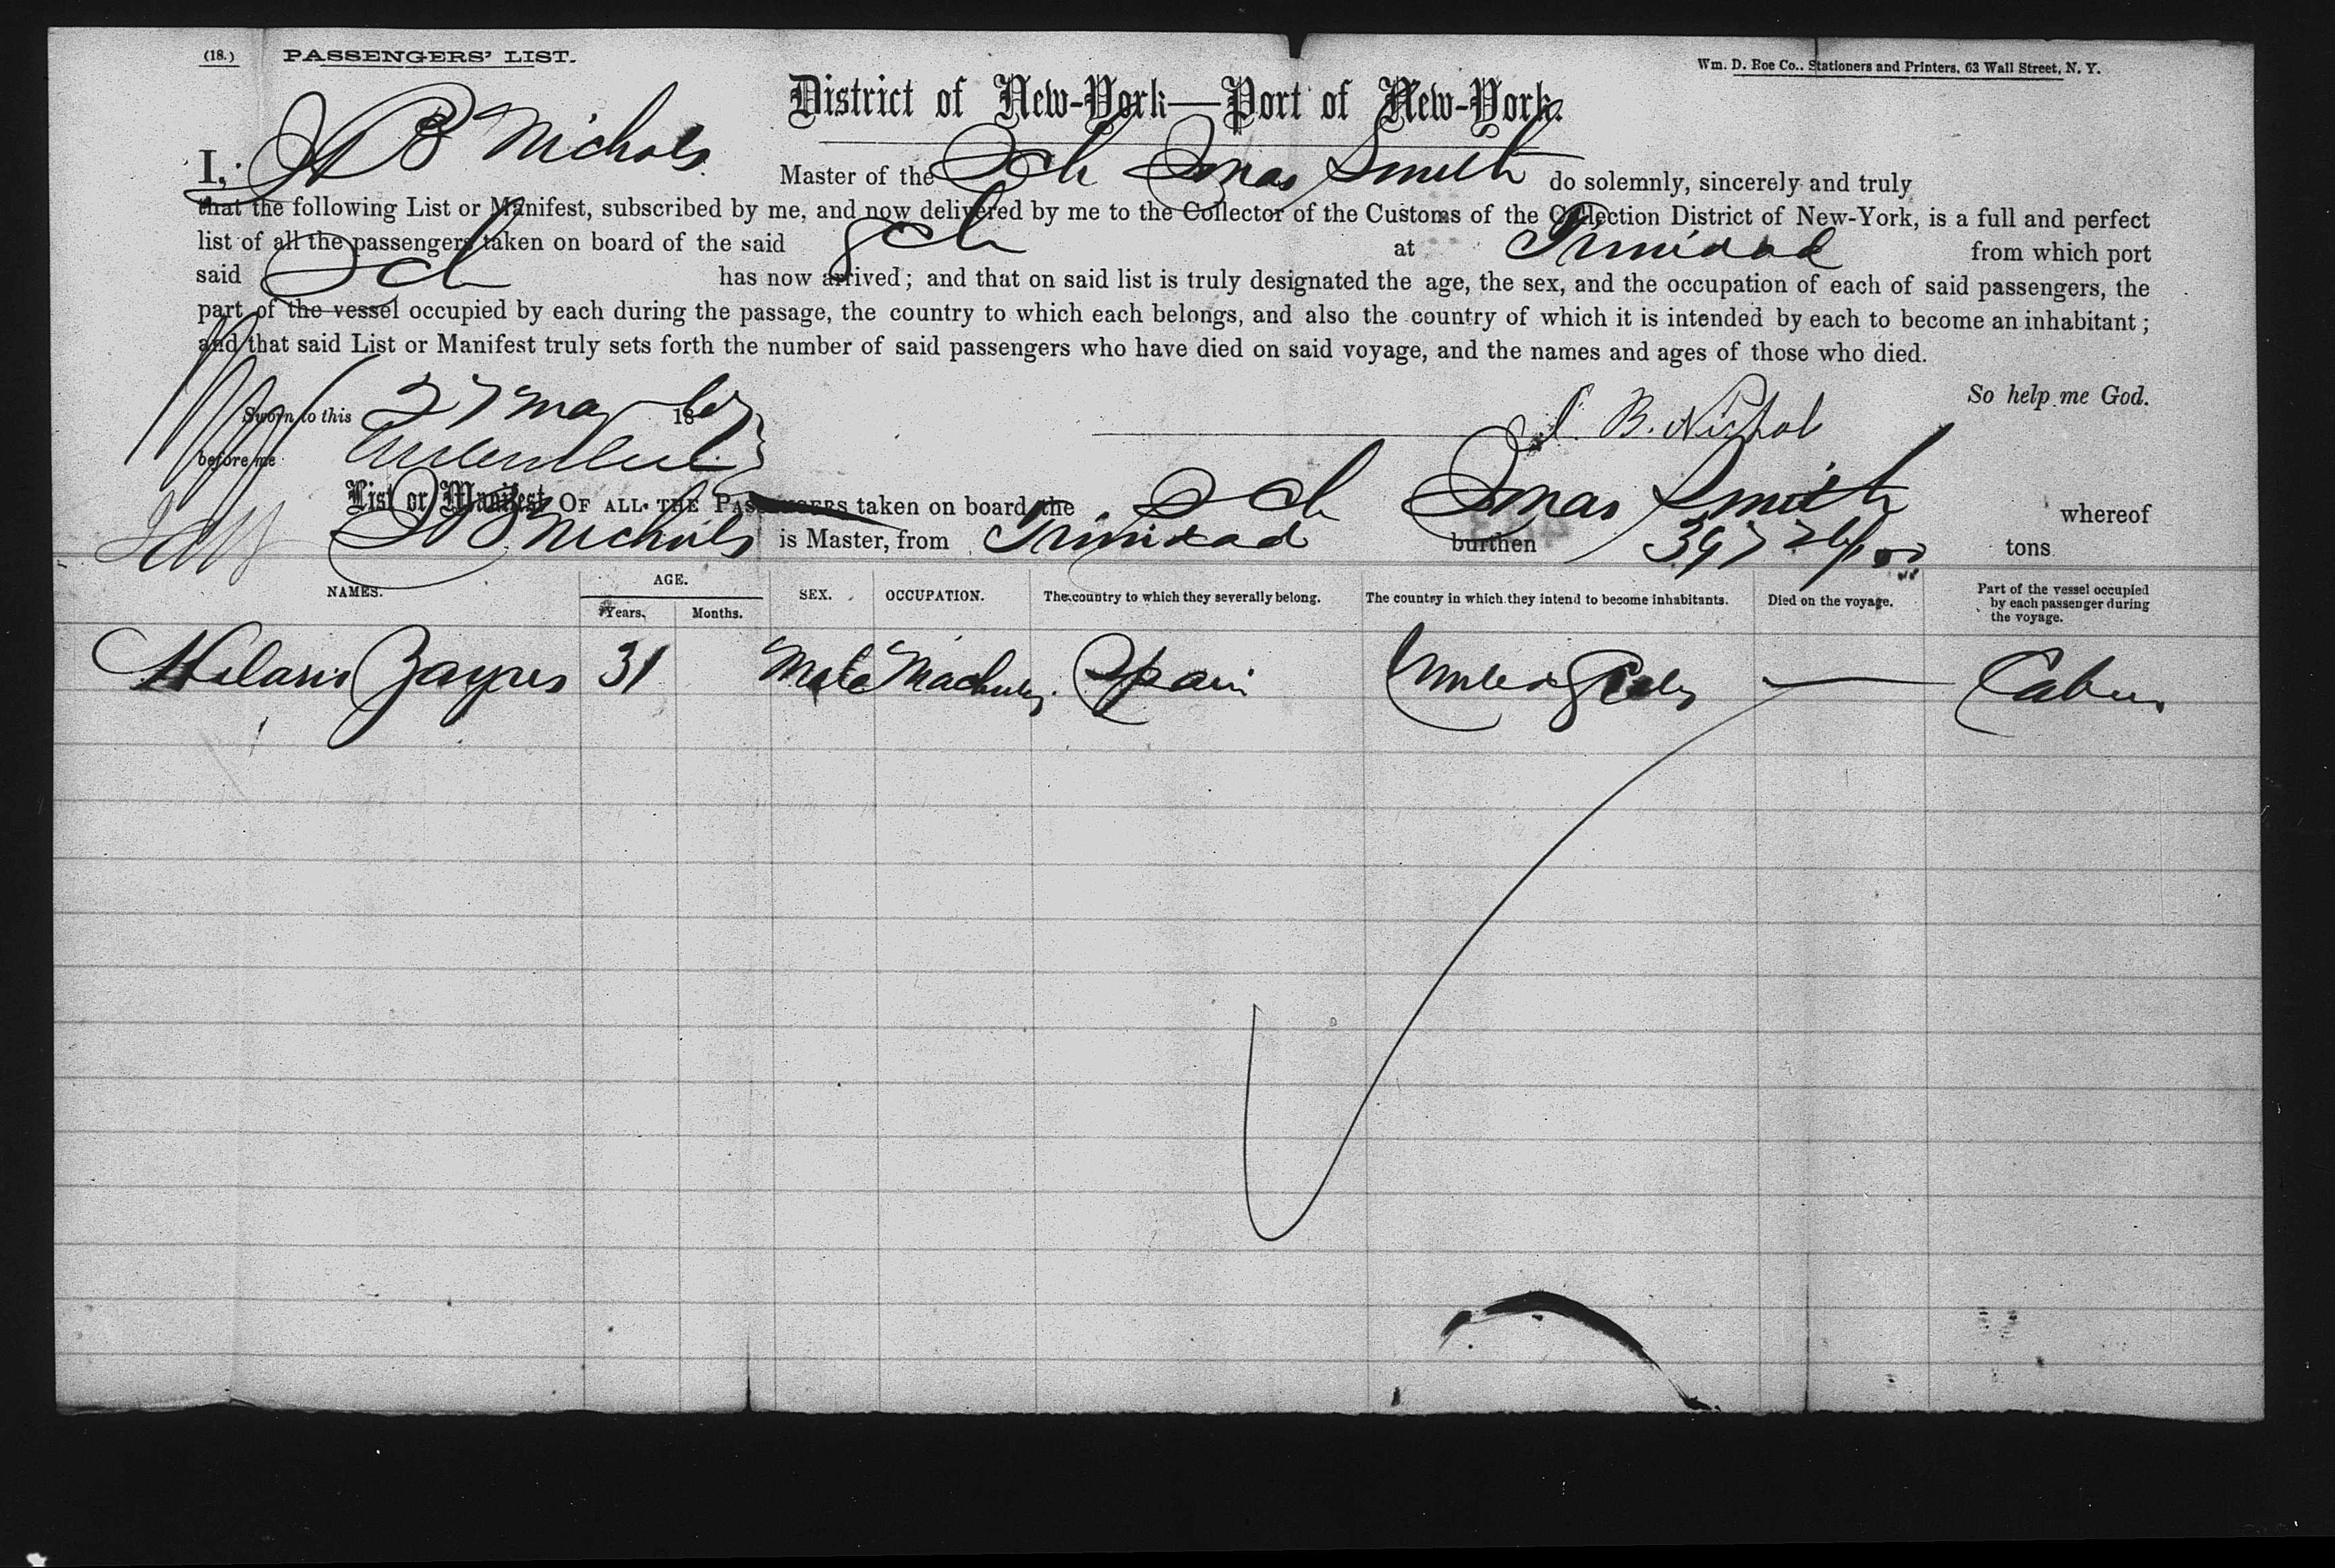 (18.) PASSENGERS' LIST.
Wm. D. Roe Co., Stationers and Printers, 63 Wall Street, N. Y.
District of New-York—Port of New-York.
I, B Nichols Master of the Sch Smith do solemnly, sincerely and truly
that the following List or Manifest, subscribed by me, and now delivered by me to the Collector of the Customs of the Collection District of New-York, is a full and perfect
list of all the passengers taken on board of the said Sch at Trinidad from which port
said Sch has now arrived; and that on said list is truly designated the age, the sex, and the occupation of each of said passengers, the
part of the vessel occupied by each during the passage, the country to which each belongs, and also the country of which it is intended by each to become an inhabitant;
and that said List or Manifest truly sets forth the number of said passengers who have died on said voyage, and the names and ages of those who died.
So help me God.
Sworn to this 27 May 18
B. Nichol
before me
List or Manifest OF ALL THE PASSENGERS taken on board the Sch Smith whereof
B Nichols is Master, from Trinidad burthen 397 26/100 tons
NAMES. AGE. Years. Months. SEX. OCCUPATION. The country to which they severally belong. The country in which they intend to become inhabitants. Died on the voyage. Part of the vessel occupied by each passenger during the voyage.
31 Male Spain Cabin